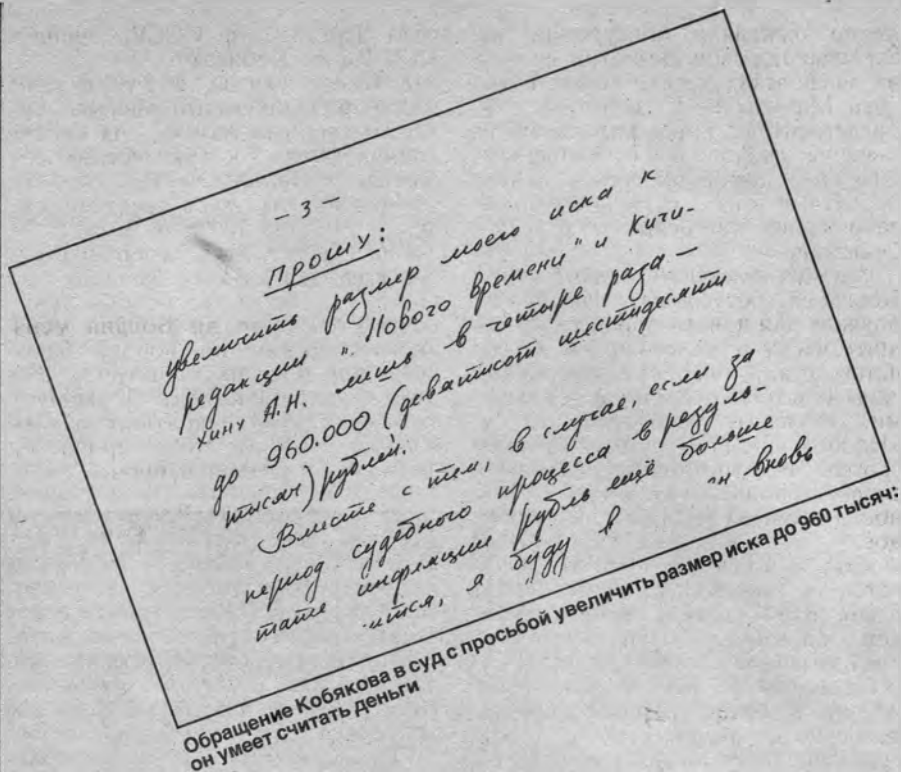 – 3 –
Прошу:
увеличить размер моего иска к
редакции "Нового времени" и Кичи-
хину А.Н. лишь в четыре раза –
до 960.000 (девятисот шестидесяти
тысяч) рублей.
Вместе с тем, в случае, если за
период судебного процесса в резуль-
тате инфляции рубль ещё больше
ится, я буду в н вновь
Обращение Кобякова в суд с просьбой увеличить размер иска до 960 тысяч:
он умеет считать деньги